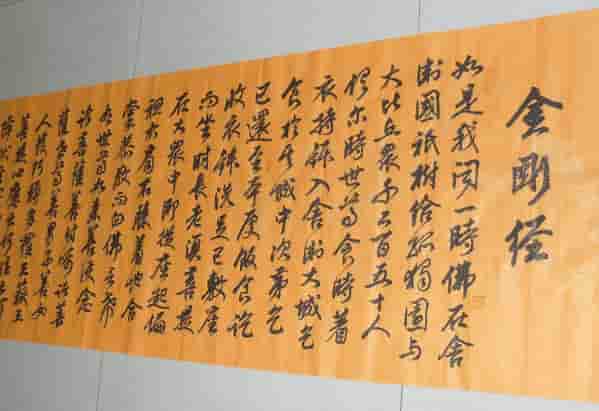 金剛经
如是我闻一時佛在舍
衛國祇樹给孤獨園与
大比丘衆千二百五十人
俱尔時世尊食時着
衣持鉢入舍衛大城乞
食於其城中次第乞
已還至本處飯食讫
收衣鉢洗足已敷座
而坐時長老須菩提
在大衆中即從座起偏
袒右肩右膝着地合
掌恭敬而白佛言希
有世尊如来善護念
诸菩薩善付嘱诸菩
薩世尊善男子善女
人發阿耨多羅三藐三
菩提心應云何住